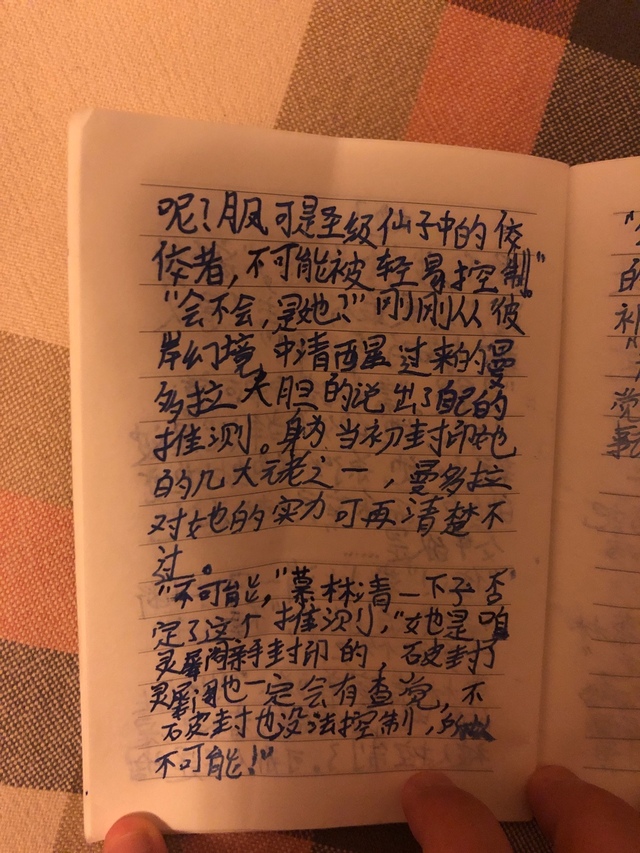 呢?凤可是圣级仙子中的佼
佼者,不可能被轻易控制"
"会不会,是她?"刚刚从彼
岸幻境,中清醒过来的曼
多拉大胆的说出了自己的
推测。身为当初封印她
的几大元老之一,曼多拉
对她的实力可再清楚不
过。
"不可能,"慕林清一下子否
定了这个推测,"她是咱
灵犀阁亲手封印的,破封了
灵犀阁也一定会有查觉,不
破封也没法控制,所以
不可能!"
"
的
补
觉